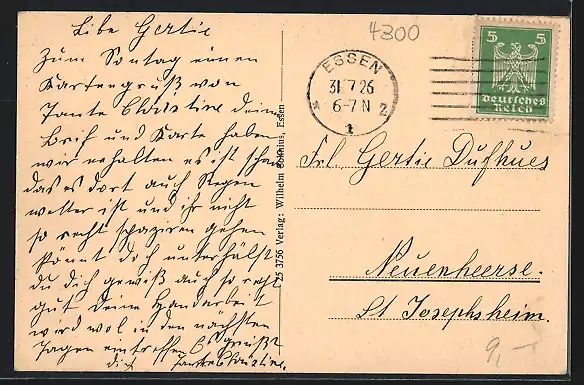 Libe Gertie
Zum Sontag einen
Kartengruß von
Tante Christine deine
Brif und Karte haben
wir erhalten es ist schon
das es dort auch Regen
wetter ist und ihr nicht
so recht spaziren gehen
könnt doch unterhälst
du dich gewiß auch so recht
gut deine Handarbeit
wird wol in den nächsten
Tagen eintreffen Es grüßt
dich Tante Christine.
25 3756 Verlag: Wilhelm Essen
4300
ESSEN
31.7.26
6-7 N
* 1 z
5 5
Deutsches
Reich
Frl. Gertie Dufhues
Neuenheerse.
St. Josephsheim.
9,-